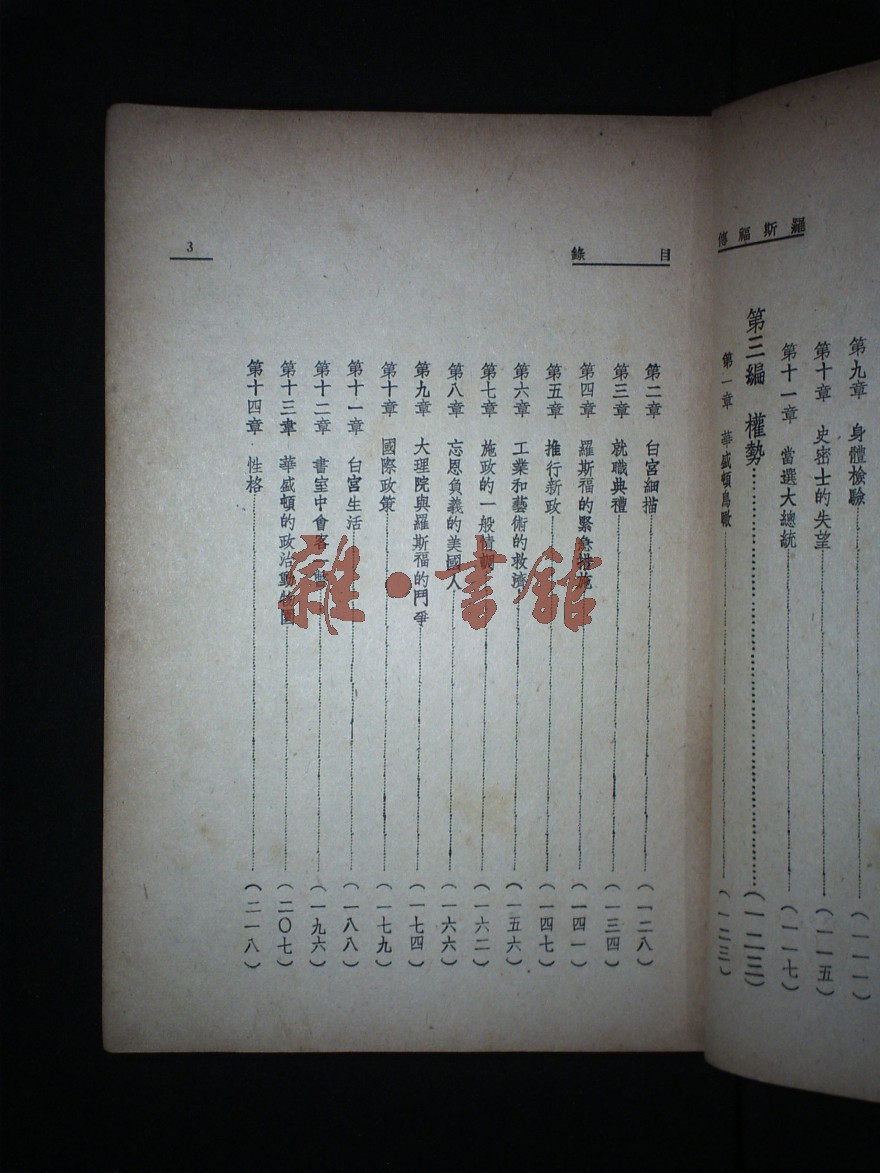 羅斯福傳
第九章 身體檢驗 (一一一)
第十章 史密士的失望 (一一五)
第十一章 當選大總統 (一一七)
第三編 權勢 (一二三)
第一章 華盛頓鳥瞰 (一二三)
目錄
第二章 白宮細描 (一二八)
第三章 就職典禮 (一三四)
第四章 羅斯福的緊急措施 (一四一)
第五章 推行新政 (一四七)
第六章 工業和藝術的救濟 (一五六)
第七章 施政的一般情調 (一六二)
第八章 忘恩負義的美國人 (一六六)
第九章 大理院與羅斯福的鬥爭 (一七四)
第十章 國際政策 (一七九)
第十一章 白宮生活 (一八八)
第十二章 書室中會客一瞥 (一九六)
第十三章 華盛頓的政治動物園 (二〇七)
第十四章 性格 (二一八)
3
雜·書館